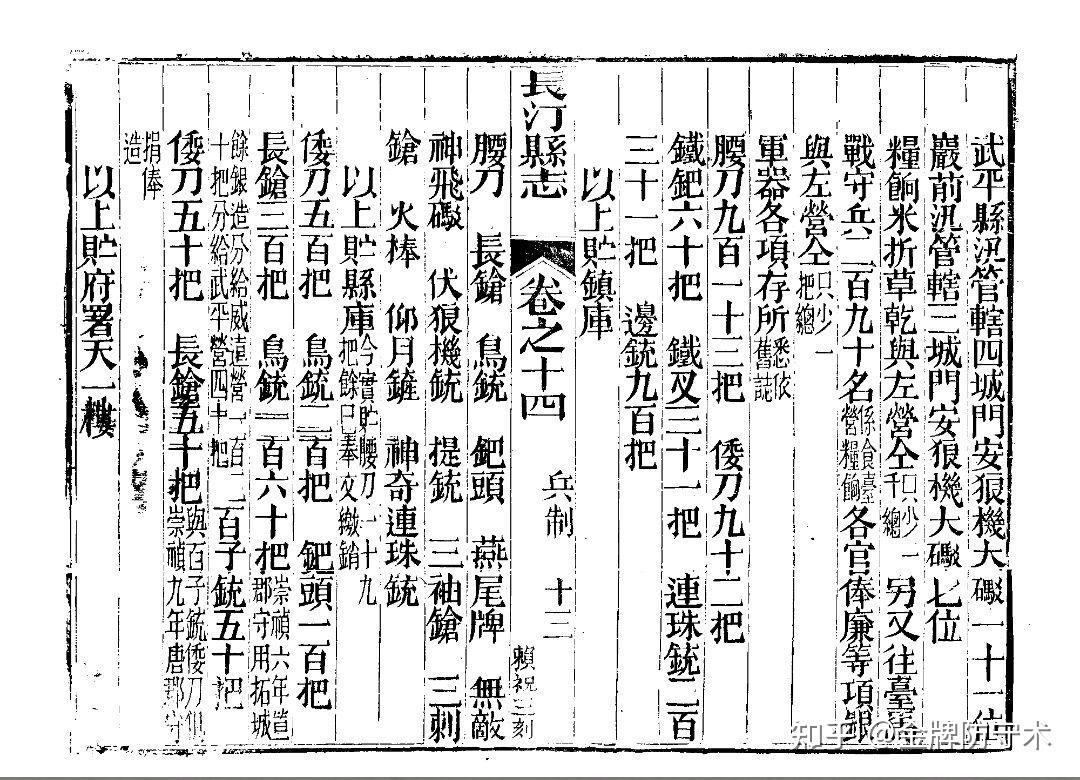 武平縣汛管轄四城門安狼機大礟一十一位
巖前汛管轄三城門安狼機大礟七位
糧餉米折草乾與左營仝只少一千總另又往臺灣
戰守兵二百九十名係食臺營糧餉各官俸廉等項銀
與左營仝只少一把總
軍器各項存所悉依舊誌
腰刀九百一十三把　倭刀九十二把
鐵鈀六十把　鐵叉三十一把　連珠銃二百
三十一把　邊銃九百把
以上貯鎮庫
長汀縣志　卷之十四　兵制　十三
腰刀　長鎗　鳥銃　鈀頭　燕尾牌　無敵
神飛礟　伏狼機銃　提銃　三袖鎗　三刺
鎗　火棒　仰月鏟　神奇連珠銃
以上貯縣庫今實貯腰刀一十九把餘已奉文繳銷
倭刀五百把　鳥銃二百把　鈀頭一百把
長鎗三百把　鳥銃一百六十把崇禎六年造郡守用拓城
餘銀造分給威遠營一百二十把分給武平營四十把　百子銃五十把
倭刀五十把　長鎗五十把與百子銃倭刀俱崇禎九年唐郡守
捐俸造
以上貯府署天一樓
知乎 @金牌防守术